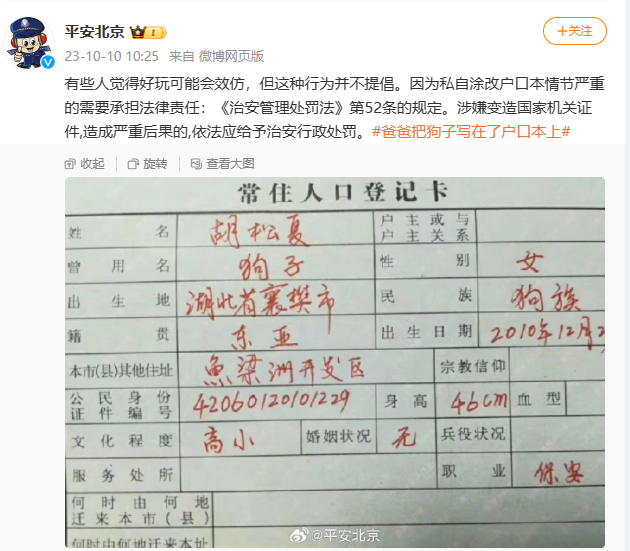 平安北京
1
+关注
23-10-10 10:25 来自 微博网页版
有些人觉得好玩可能会效仿，但这种行为并不提倡。因为私自涂改户口本情节严重
的需要承担法律责任：《治安管理处罚法》第52条的规定。涉嫌变造国家机关证
件,造成严重后果的,依法应给予治安行政处罚。#爸爸把狗子写在了户口本上#
收起 旋转 查看大图
常住人口登记卡
姓名 胡松夏 户主或与户主关系
曾用名 狗子 性别 女
出生地 湖北省襄樊市 民族 狗族
籍贯 东亚 出生日期 2010年12月2
本市(县)其他住址 鱼梁洲开发区 宗教信仰
公民身份证件编号 42060120101229 身高 46cm 血型
文化程度 高小 婚姻状况 无 兵役状况
服务处所 职业 保安
何时由何地迁来本市(县)
何时由何地迁来本址
@平安北京